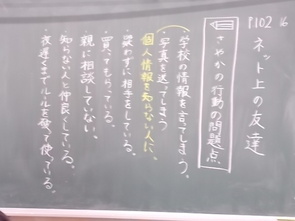 P102
ネット上の友達
さやかの行動の問題点
学校の情報を言ってしまう。
写真を送ってしまう
個人情報を知らない人に、
疑わずに相手をしている。
買ってもらっている。
親に相談していない。
知らない人と仲良くしている。
夜遅くまでルールを破って使っている。